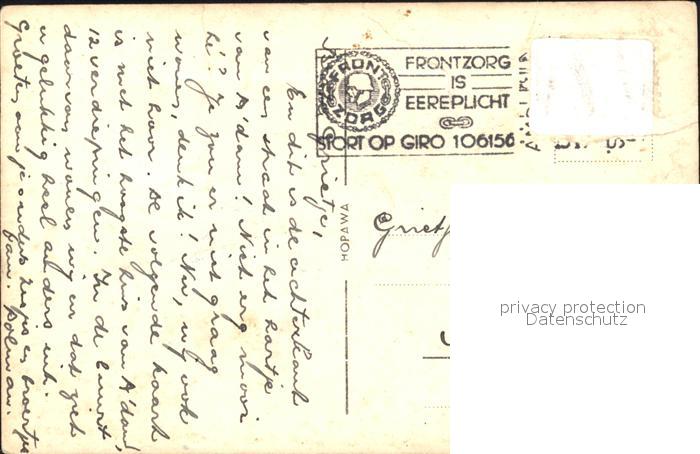 Grietje,
En dit is de achterkant
van een straat in het hartje
van A'dam! Niet erg mooi
hè? Je zou er niet graag
wonen, denk ik! Nu, wij ook
niet hoor. De volgende kaart
is met het hoogste huis van A'dam,
12 verdiepingen. In de buurt
daarvan wonen wij en dat ziet
er gelukkig heel anders uit.
Groeten aan je ouders, zusjes en broertje
fam.
FRONT
ZORG
FRONTZORG
IS
EEREPLICHT
STORT OP GIRO 106156
HOPAWA
privacy protection
Datenschutz